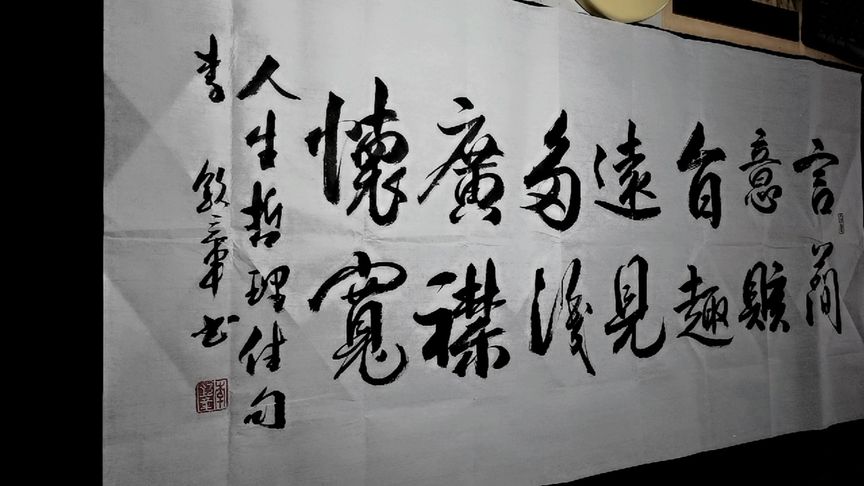 言簡
意賅
自趣
遠見
多識
廣襟
懷寬
人生哲理佳句
李章书